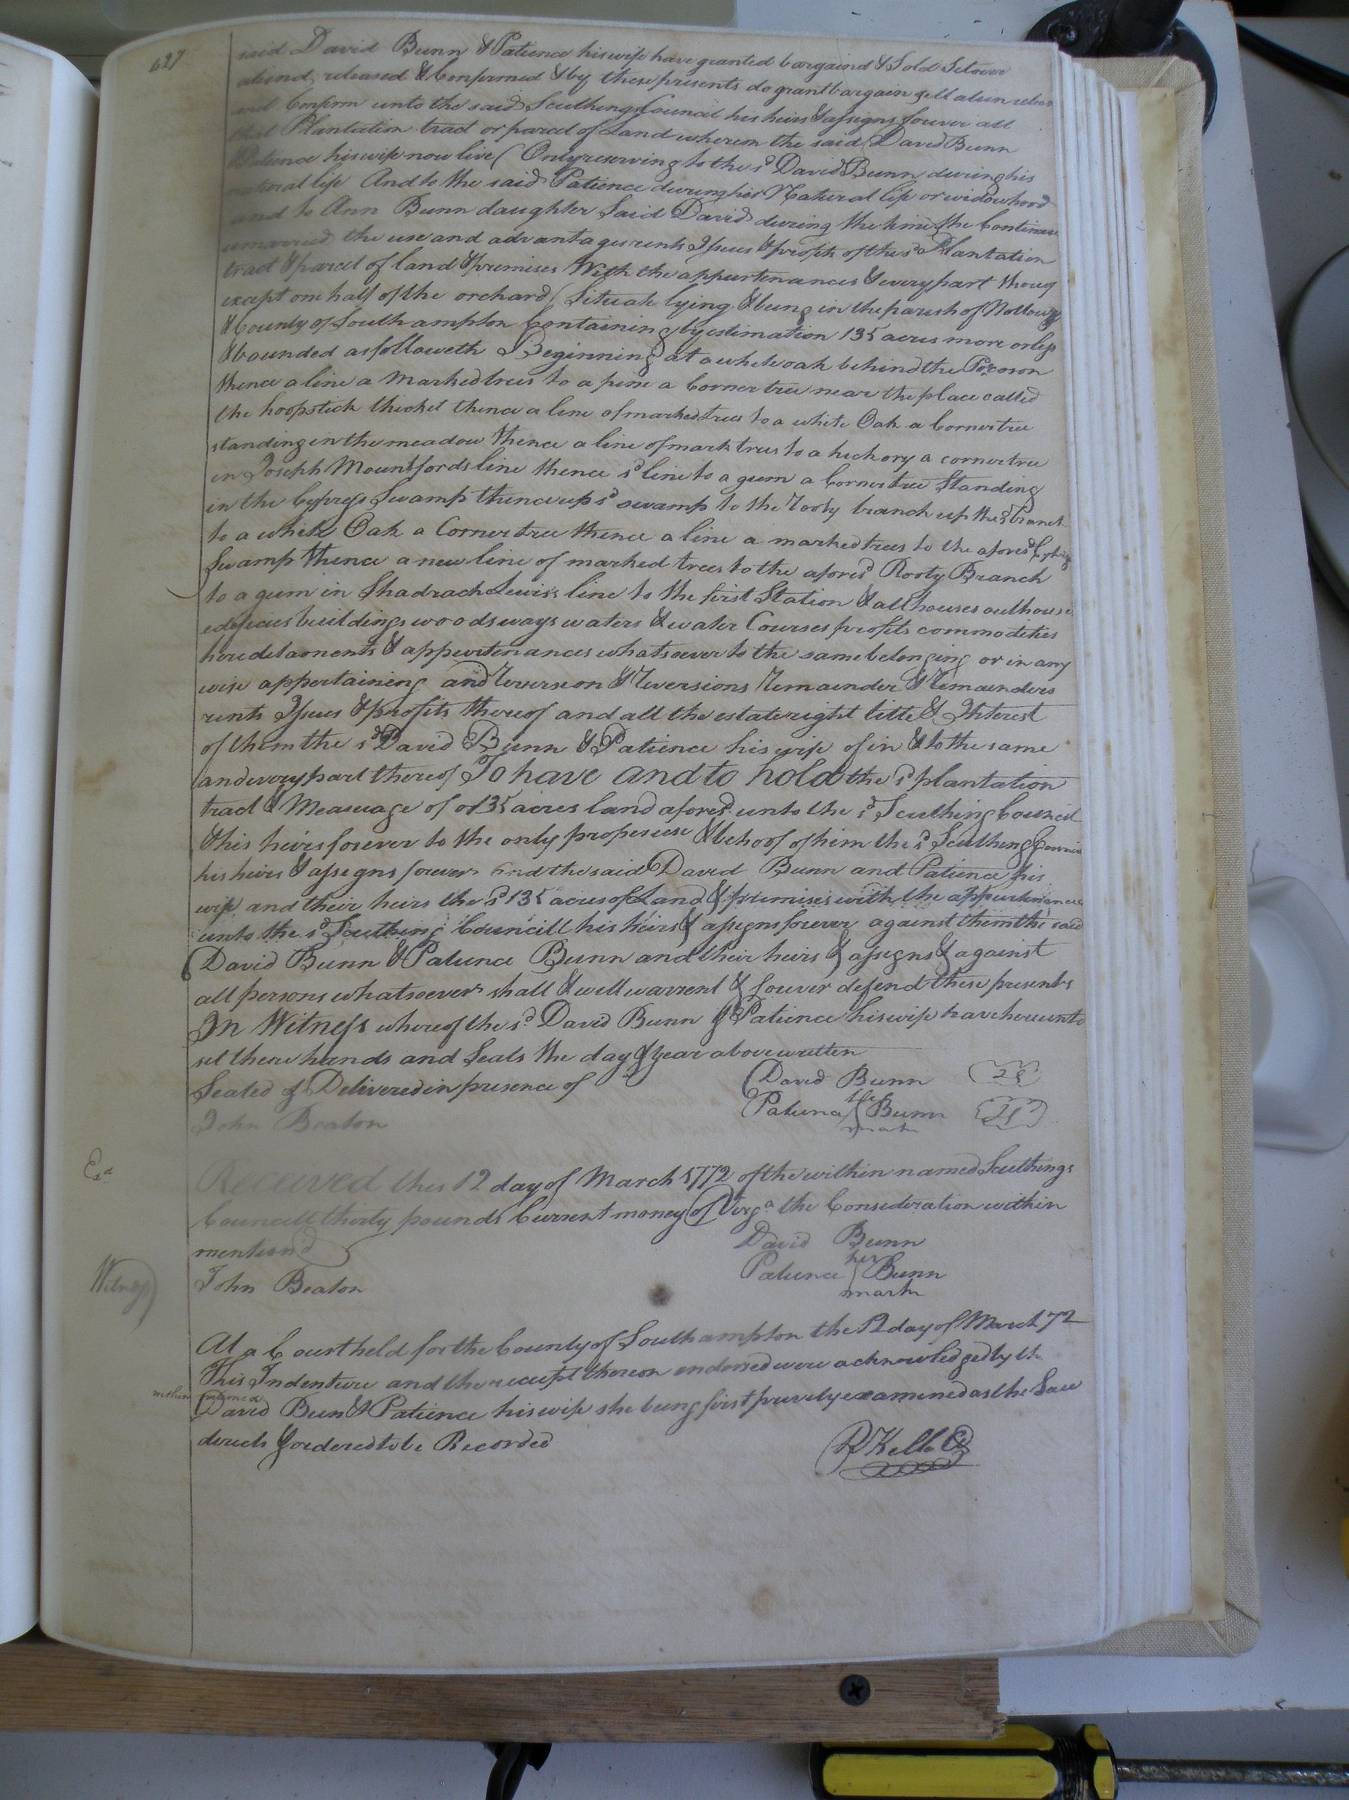 627
said David Bunn & Patience his wife have granted bargaind & Sold Setover
aliend, released & Confirmed & by these presents do grant bargain sell alien release
and Confirm unto the said Scuthing Councill his heirs & assigns forever all
that Plantation tract or parcel of Land wherein the said David Bunn
& Patience his wife now live (Only reserving to the sd David Bunn during his
natural life And to the said Patience during her Natural life or widowhood
and to Ann Bunn daughter Said David during the time she Continues
unmarried the use and advantages rents Issues & profits of the sd Plantation
tract & parcel of land & premises With the appurtenances & every part thereof
except one half of the orchard (Situate lying & being in the parish of Nottoway
& County of Southampton Containing by estimation 135 acres more or less
& bounded as followeth Beginning at a white oak behind the Pocoson
thence a line a marked trees to a pine a Corner tree near the place called
the hoopstick thicket thence a line of marked trees to a white Oak a Corner tree
standing in the meadow thence a line of mark trees to a hickory a corner tree
in Joseph Mountfords line thence sd line to a gum a Corner tree Standing
in the Cypress Swamp thence up sd swamp to the rooty branch up the sd Branch
to a white Oak a Corner tree thence a line a marked trees to the aforesd
Swamp thence a new line of marked trees to the aforesd Rooty Branch
to a gum in Shadrach Lewis's line to the first Station & all houses outhouses
edificies buildings woods ways waters & water Courses profits commodities
heredetaments & appurtenances whatsoever to the same belonging or in any
wise appertaining and reversion & Reversions Remainder & Remainders
rents Issues & profits thereof and all the estate right title & Interest
of them the sd David Bunn & Patience his wife of in & to the same
and every part thereof To have and to hold the sd plantation
tract & Measuage of 135 acres land aforesd unto the sd Scuthing Councill
& his heirs forever to the only proper use & behoof of him the sd Scuthing Councill
his heirs & assigns forever and the said David Bunn and Patience his
wife and their heirs the sd 135 acres of Land & premises with the appurtenances
unto the sd Scuthing Councill his heirs & assigns forever against them the said
David Bunn & Patience Bunn and their heirs & assigns & against
all persons whatsoever shall & will warrent & forever defend these presents
In Witness whereof the sd David Bunn & Patience his wife have hereunto
set there hands and Seals the day & year above written
Sealed & Delivered in presence of David Bunn
John Beaton Patience her Bunn
mark
Received this 12 day of March 1772 of the within named Scuthing
Councill thirty pounds Current money of Virga the Consideration within
mentiond David Bunn
Witness John Beaton Patience her Bunn
mark
At a Court held for the County of Southampton the 12 day of March 72
This Indenture and the receipt thereon endorsed were acknowledged by the
within named
David Bunn & Patience his wife she being first privily examined as the Law
directs & ordered to be Recorded